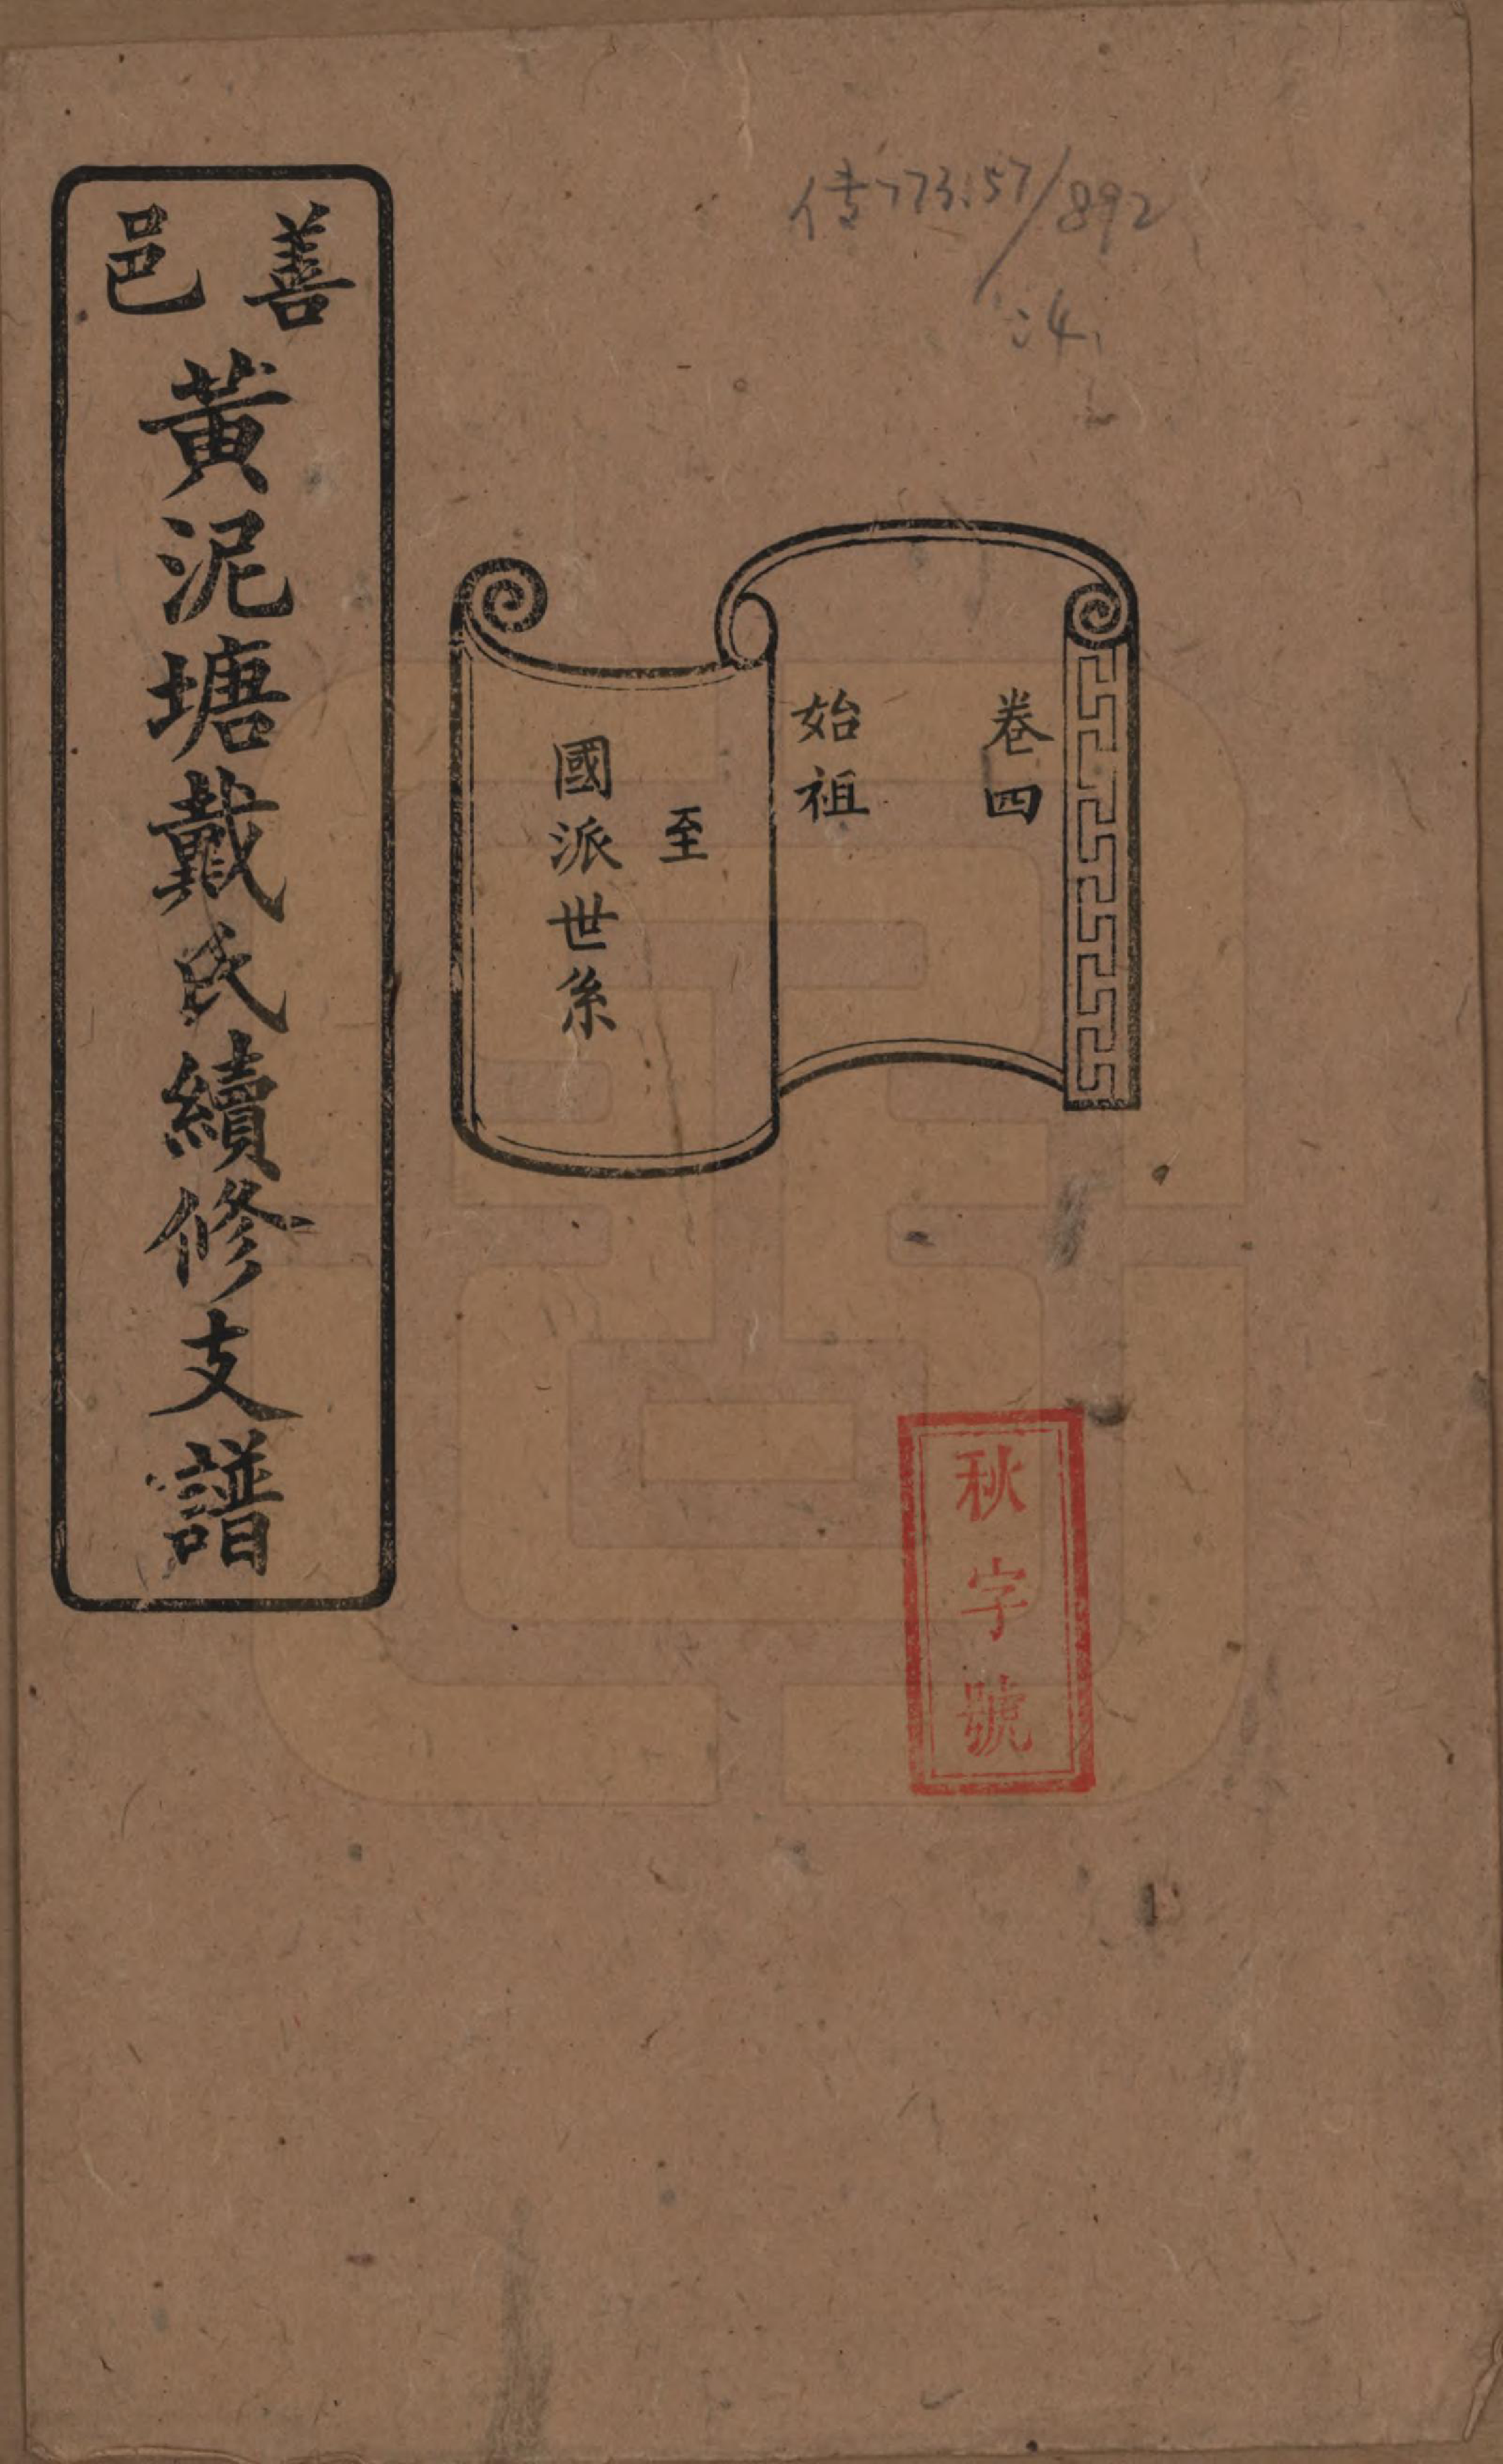 善邑
黃泥塘戴氏續修支譜
卷四
始祖
至
國派世系
秋字號
传773.57/892
:4